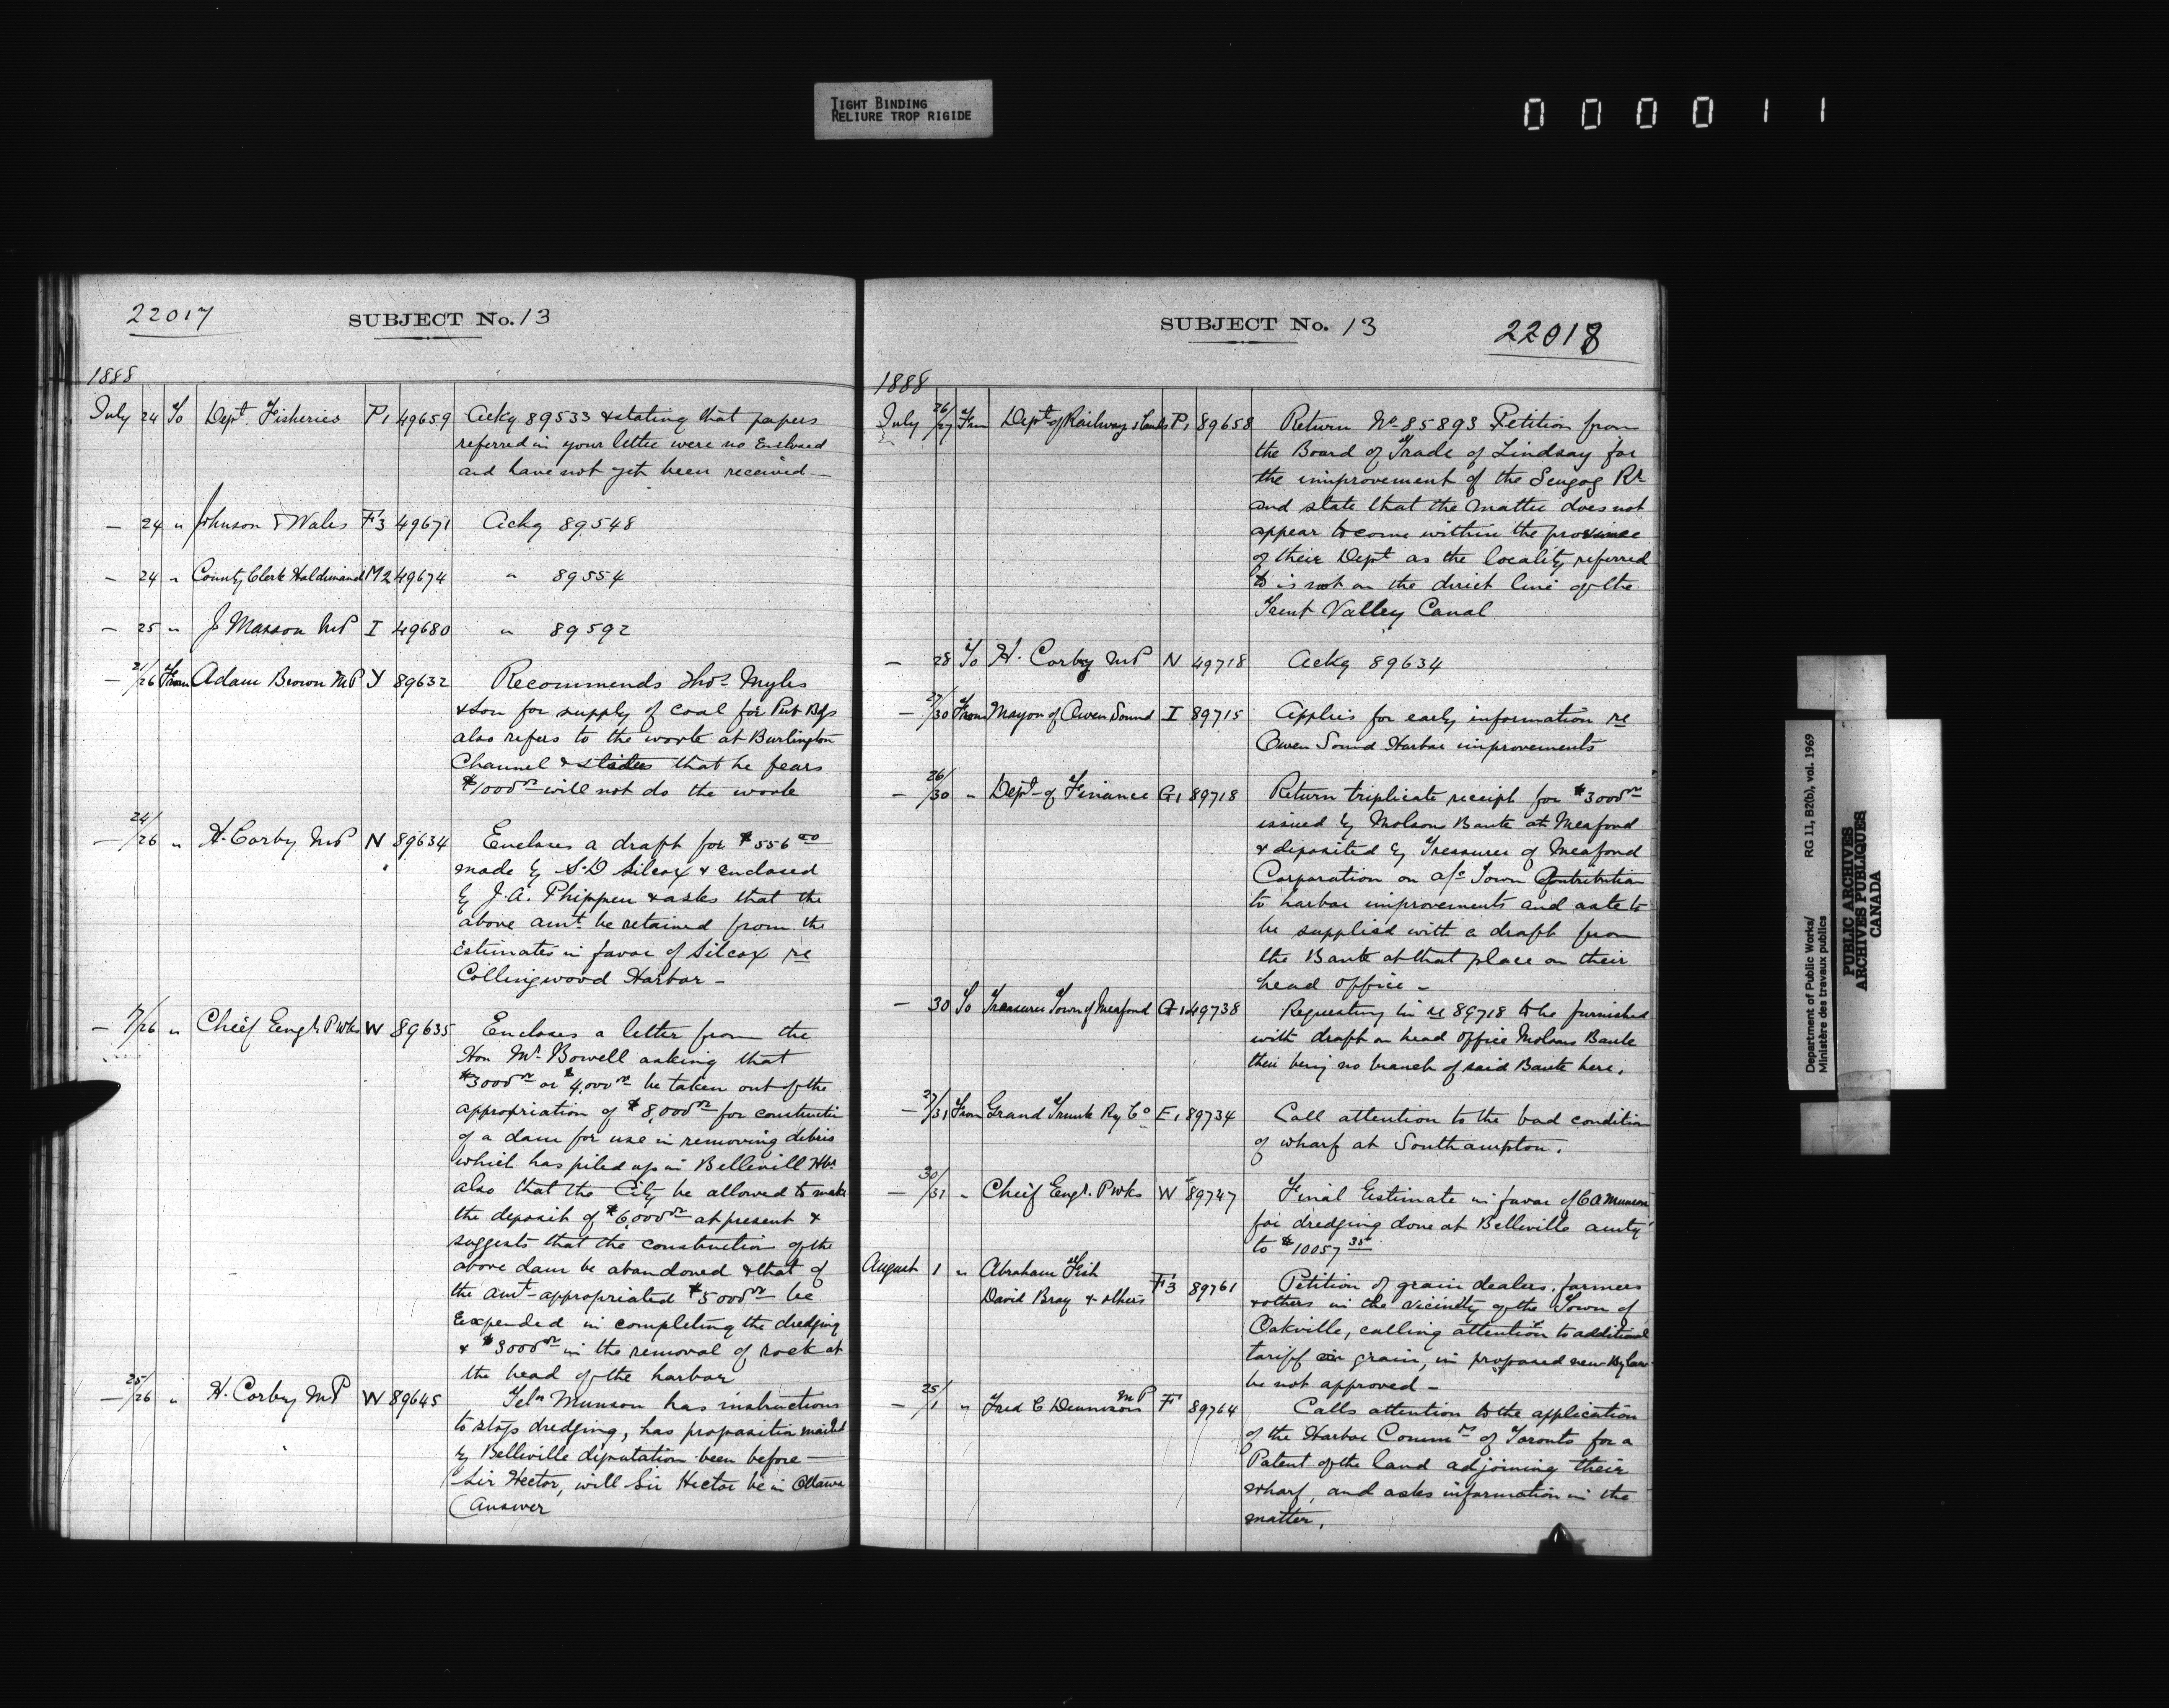 TIGHT BINDING
RELIURE TROP RIGIDE
0 0 0 0 1 1
22017
SUBJECT No. 13
1888
July 24 To Dept. Fisheries P1 49659 Ackg 89533 & stating that papers
referred in your letter were no Enclosed
and have not yet been received —
— 24 " Johnson & Wales F3 49671 Ackg 89548
— 24 " County Clerk Haldimand M2 49674 " 89554
— 25 " J Masson MP I 49680 " 89592
— 21/26 From Adam Brown MP Y 89632 Recommends Thos Myles
& Son for supply of coal for Pub Bgs
also refers to the work at Burlington
Channel & states that he fears
$1000 00 will not do the work
— 24/26 " H. Corby MP N 89634 Encloses a draft for $556 00
made by S.D Silcox & enclosed
by J.A. Phippen & asks that the
above amt. be retained from the
Estimates in favor of Silcox re
Collingwood Harbor —
— 7/26 " Chief Engr. P Wks W 89635 Encloses a letter from the
Hon Mr. Bowell asking that
$3000 00 or $4,000 00 be taken out of the
appropriation of $8,000 00 for constructn
of a dam for use in removing debris
which has piled up in Bellevill Hbr
also that the City be allowed to make
the deposit of $6,000 00 at present &
suggests that the construction of the
above dam be abandoned & that of
the amt appropriated $5000 00 be
Expended in completing the dredging
& $3000 00 in the removal of rock at
the head of the harbor
— 25/26 " H. Corby MP W 89645 Telm Munson has instructions
to stop dredging, has proposition mailed
by Belleville deputation been before —
Sir Hector, will Sir Hector be in Ottawa
(Answer
SUBJECT No. 13
22018
1888
July 26/27 From Dept of Railways & Canls P1 89658 Return No 85893 Petition from
the Board of Trade of Lindsay for
the improvement of the Scugog Rr
and state that the matter does not
appear to come within the province
of their Dept as the locality referred
to is not on the direct line of the
Trent Valley Canal
— 28 To H. Corby MP N 49718 Ackg 89634
— 27/30 From Mayor of Owen Sound I 89715 Applies for early information re
Owen Sound Harbor improvements
— 26/30 " Dept of Finance G1 89718 Return triplicate receipt for $3000 00
issued by Molsons Bank at Meaford
& deposited by Treasurer of Meaford
Corporation on a/c Town Contribution
to harbor improvements and ask to
be supplied with a draft from
the Bank at that place on their
head office —
— 30 To Treasurer Town of Meaford G1 49738 Requesting him re 89718 to be furnished
with draft on head office Molsons Bank
their being no branch of said Bank here.
— 27/31 From Grand Trunk Ry Co E1 89734 Call attention to the bad condition
of wharf at Southampton.
— 30/31 " Chief Engr. P Wks W 89747 Final Estimate in favor of C A Munson
for dredging done at Belleville amtg
to $10057 35
August 1 " Abraham Fish
David Bray & others F3 89761 Petition of grain dealers, farmers
& others in the vicinity of the Town of
Oakville, calling attention to additional
tariff on grain, in proposed new By law
be not approved —
— 25/1 " Fred C Dennison MP F 89764 Calls attention to the application
of the Harbor Commrs of Toronto for a
Patent of the land adjoining their
wharf, and asks information in the
matter.
Department of Public Works/ RG 11, B2(b), vol. 1969
Ministère des travaux publics
PUBLIC ARCHIVES
ARCHIVES PUBLIQUES
CANADA